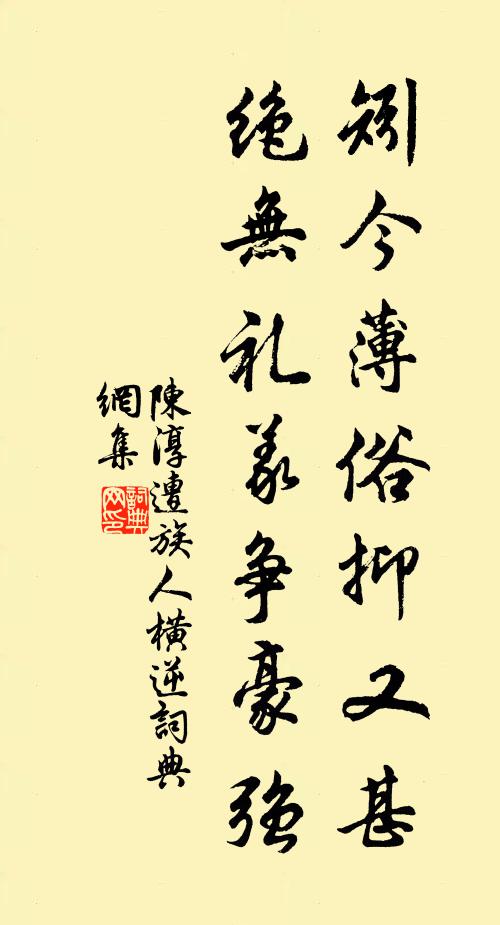 矧今薄俗抑又甚
絶無礼義争豪強
陳淳遭族人橫逆詞典
網集
詞典
网印